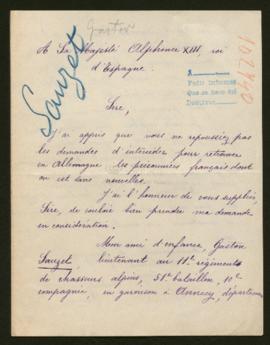 Gaston
102940
Sauzet
A Sa Majesté Alphonse XIII, roi
d'Espagne.
Pedir informes
Sire,
J'ai appris que vous ne repoussez pas
les demandes d'intercéder pour retrouver
en Allemagne les prisonniers français dont
on est sans nouvelles.
J'ai l'honneur de vous supplier,
Sire, de vouloir bien prendre ma demande
en considération.
Mon ami d'enfance, Gaston
Sauzet, lieutenant au 11e régiment
de chasseurs alpins, 51e bataillon, 10e
compagnie, en garnison à Annecy, département